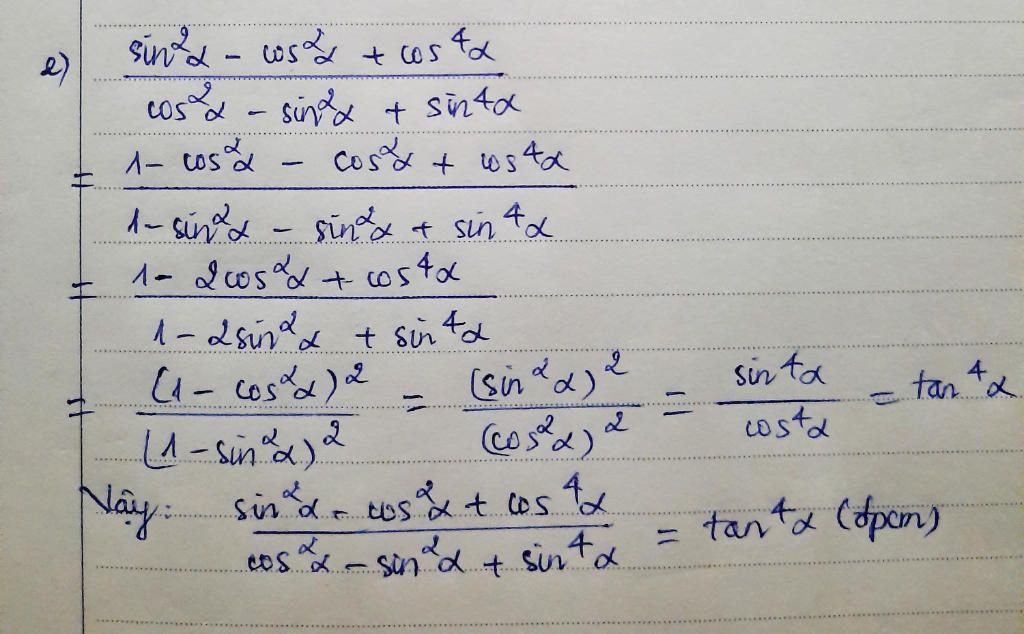 e) sin²α - cos²α + cos⁴α
cos²α - sin²α + sin⁴α
= 1 - cos²α - cos²α + cos⁴α
1 - sin²α - sin²α + sin⁴α
= 1 - 2cos²α + cos⁴α
1 - 2sin²α + sin⁴α
= (1 - cos²α)² = (sin²α)² = sin⁴α = tan⁴α
(1 - sin²α)² (cos²α)² cos⁴α
Vậy: sin²α - cos²α + cos⁴α = tan⁴α (đpcm)
cos²α - sin²α + sin⁴α